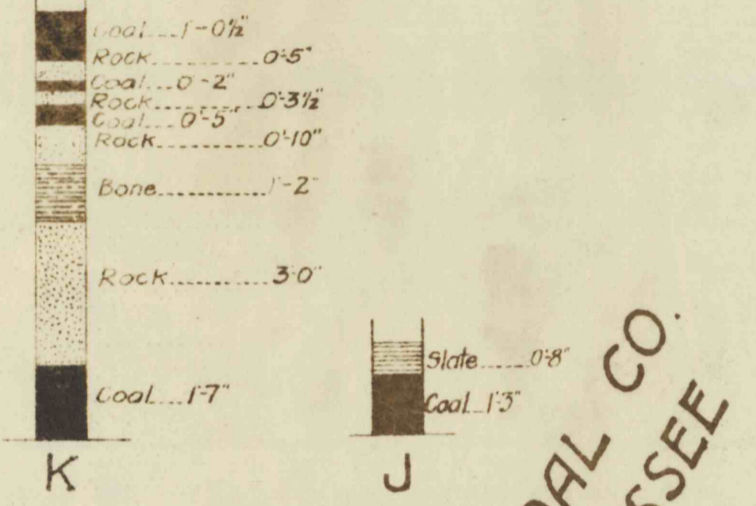 Coal 1'-0½"
Rock 0'-5"
Coal 0'-2"
Rock 0'-3½"
Coal 0'-5"
Rock 0'-10"
Bone 1'-2"
Rock 3'0"
Coal 1'-7"
K
Slate 0'-8"
Coal 1'3"
J
OAL CO.
SSEE